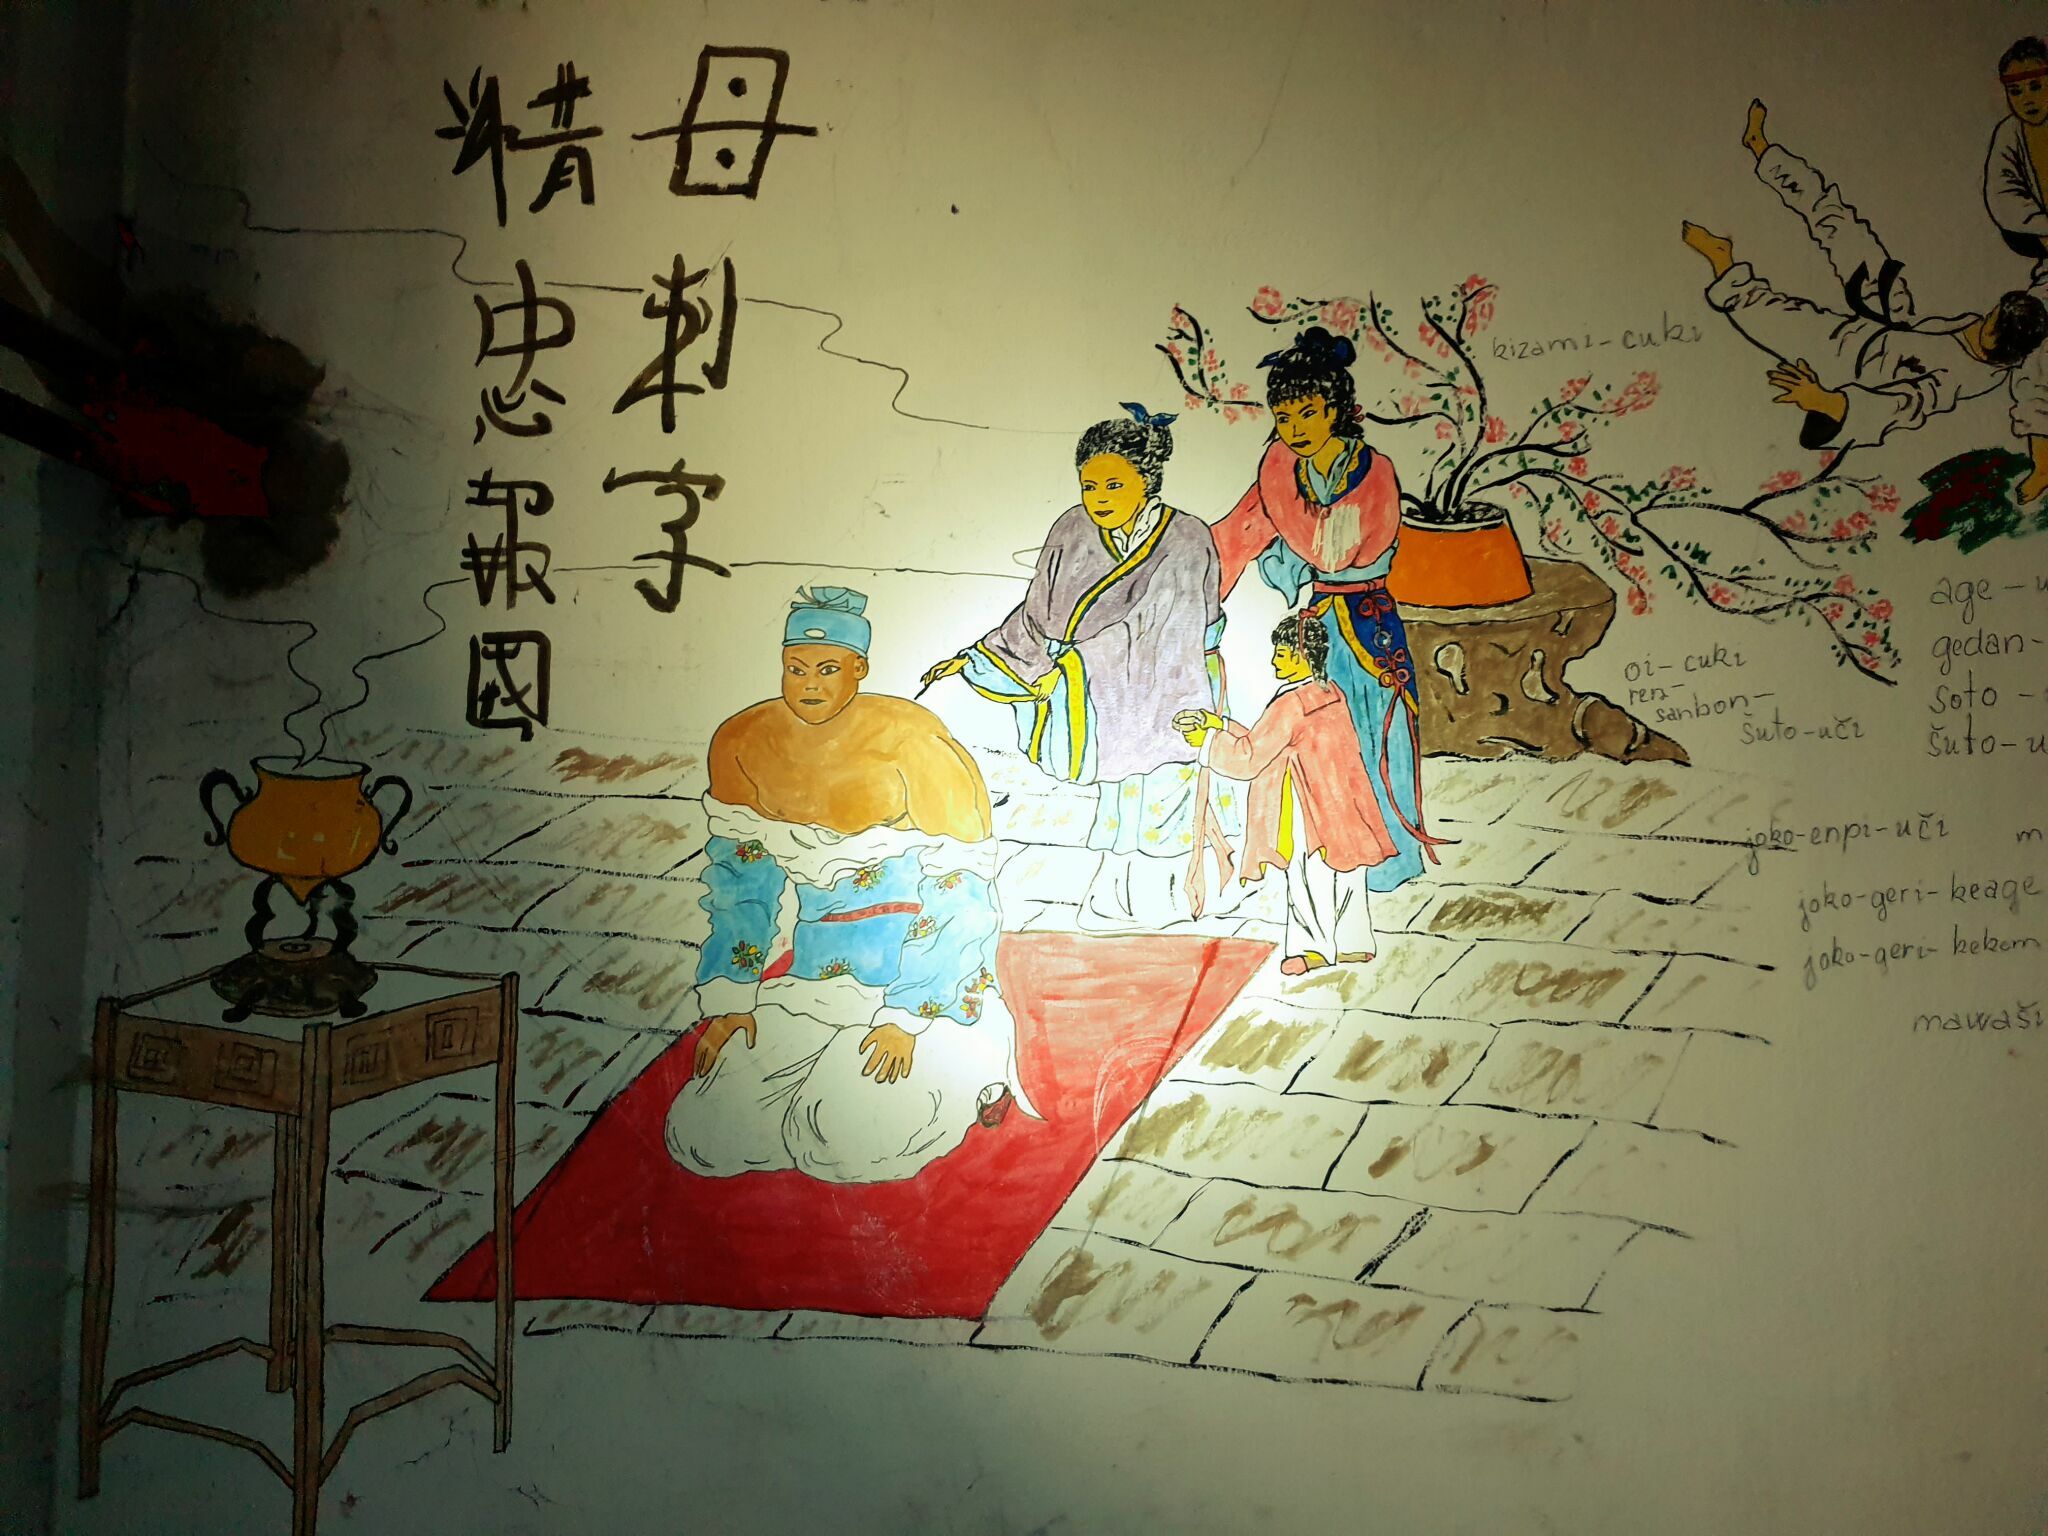 母刺字
精忠報國
kizami-cuki
oi-cuki
ren-
sanbon-
šuto-uči
age-u
gedan-
soto-
šuto-u
joko-enpi-uči
m
joko-geri-keage
joko-geri-kekom
mawaši